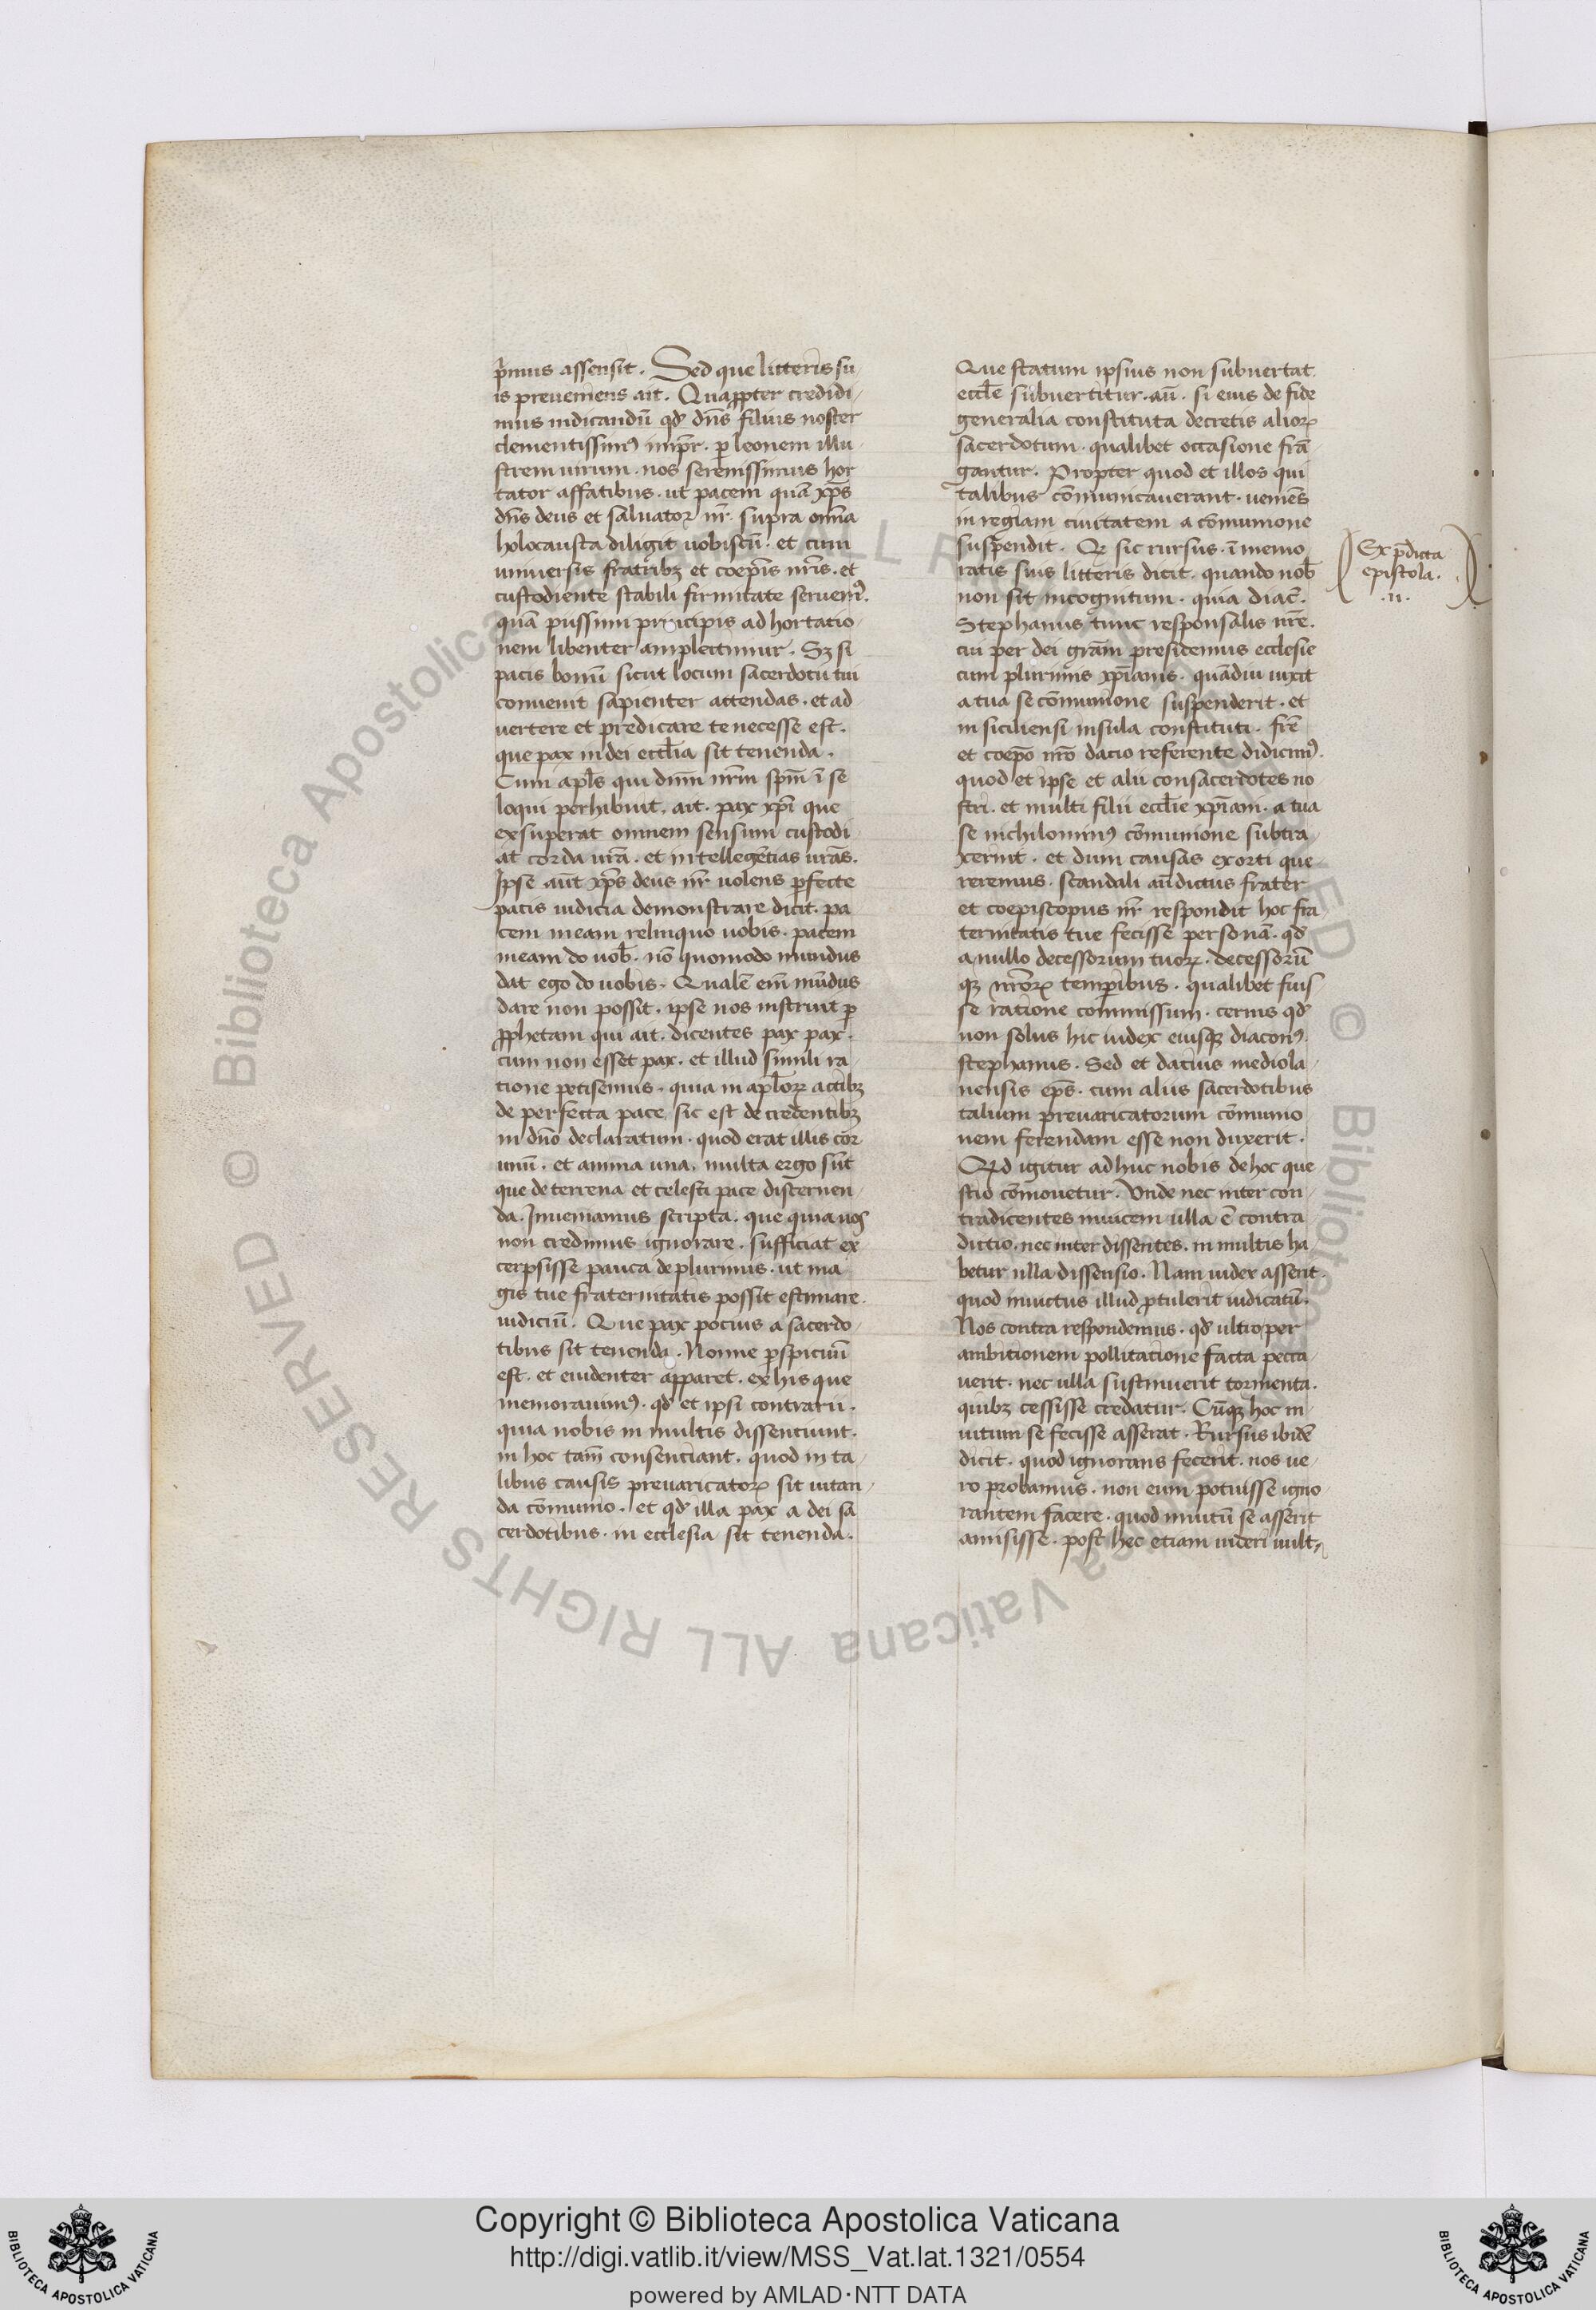 p̄mus assensit. Sed que litteris su
is preueniens ait. Quapropter credidi-
mus indicandū qd̄ dn̄s filius noster
clementissim9 imp̄r. p̄ leonem illu-
strem uirum. nos serenissimus hor
tator affatibus. ut pacem quā xp̄s
dn̄s deus et saluator nr̄. supra om̄ia
holocausta diligit uobiscū. et cum
uniuersis fratribꝫ et coep̄is nr̄is. et
custodiente stabili firmitate seruem9.
quā piissimi principis ad hortatio-
nem libenter amplectimur. Sꝫ si
pacis bonū sicut locum sacerdotii tui
conuenit sapienter attendas. et ad
uertere et predicare te necesse est.
que pax in dei eccl̄ia sit tenenda.
Cum apl̄s qui dn̄m nr̄m sp̄m ī se
loqui perhibuit. ait. pax xp̄i que
exsuperat omnem sensum custodi-
at corda ur̄a. et intellegētias ur̄as.
Ipse aut̄ xp̄s deus nr̄ uolens p̄fecte
pacis iudicia demonstrare dicit. pa
cem meam relinquo uobis. pacem
meam do uob̄. nō quomodo mundus
dat ego do uobis. Qualē em̄ mūdus
dare non possit. ipse nos instruit p̄
ꝓphetam qui ait. dicentes pax pax.
cum non esset pax. et illud simili ra-
tione petisemus. quia in apl̄oꝝ actibꝫ
de perfecta pace sic est de credentibꝫ
in dn̄o declaratum. quod erat illis cor
unū. et anima una. multa ergo sūt
que de terrena et celesti pace discernen-
da. Inueniamus scripta. que quia uos
non credimus ignorare. sufficiat ex
cerpsisse pauca de plurimis. ut ma
gis tue fraternitatis possit estimare.
iudiciū. Que pax pocius a sacerdo-
tibus sit tenenda. Nonne p̄spicuū
est. et euidenter apparet. ex his que
memorauim9. qd̄ et ipsi contrarii.
quia nobis in multis dissenciunt.
in hoc tam̄ consenciant. quod in ta-
libus causis preuaricatoꝝ sit uitan-
da cōmunio. et qd̄ illa pax a dei sa
cerdotibus. in ecclesia sit tenenda.
Que statum ipsius non subuertat.
eccl̄e subuertitur. aū. si eius de fide
generalia constituta decretis alioꝝ
sacerdotum. qualibet occasione frā-
gantur. Propter quod et illos qui
talibus cōmunicauerant. ueniēs
in regiam ciuitatem a cōmunione
suspendit. Qꝫ sic rursus. ī memo
ratis suis litteris dicit. quando nob̄
non sit incognitum. quia diac̄.
Stephanus tunc responsalis nr̄e.
cui per dei gr̄am presidemus ecclesie
cum plurimis xp̄ianis. quādiu uixit
a tua se cōmunione suspenderit. et
in siciliensi insula constituti. fr̄e
et coep̄o nr̄o dacio referente didicim9.
quod et ipse et alii consacerdotes no
stri. et multi filii eccl̄ie xp̄iani. a tua
se nichilomin9 cōmunione subtra-
xerint. et dum causas exorti que-
reremus. scandali aū dictus frater
et coepiscopus nr̄ respondit hoc fra
ternitatis tue fecisse personā. qd̄
a nullo decessorum tuoꝝ. decessorū
qꝫ nr̄oꝝ temp̄ibus. qualibet fuis
se ratione commissum. cernis qd̄
non solus hic iudex eiusqꝫ diacon9.
stephanus. Sed et dacius mediola-
nensis ep̄s. cum aliis sacerdotibus
talium preuaricatorum cōmunio
nem ferendam esse non duxerit.
Qd igitur adhuc nobis de hoc que-
stio cōmouetur. Vnde nec inter con-
tradicentes inuicem ulla ē contra
dictio. nec inter dissentes. in multis ha
betur ulla dissensio. Nam uidex asserit.
quod inuictus illud p̄tulerit iudicatū.
Nos contra respondemus. qd̄ ultio per
ambitionem pollitatione facta pecca-
uerit. nec ulla sustinuerit tormenta.
quibꝫ cessisse credatur. Cūqꝫ hoc in-
uitum se fecisse asserat. Rursus ibidē
dicit. quod ignorans fecerit. nos ue-
ro probamus. non eum potuisse igno
rantem facere. quod inuitū se asserit
amisisse. post hec etiam uideri uult
Ex p̄dicta
epistola.
.ii.
© Biblioteca Apostolica Vaticana ALL RIGHTS RESERVED
Copyright © Biblioteca Apostolica Vaticana
http://digi.vatlib.it/view/MSS_Vat.lat.1321/0554
powered by AMLAD·NTT DATA
BIBLIOTECA APOSTOLICA VATICANA
BIBLIOTECA APOSTOLICA VATICANA